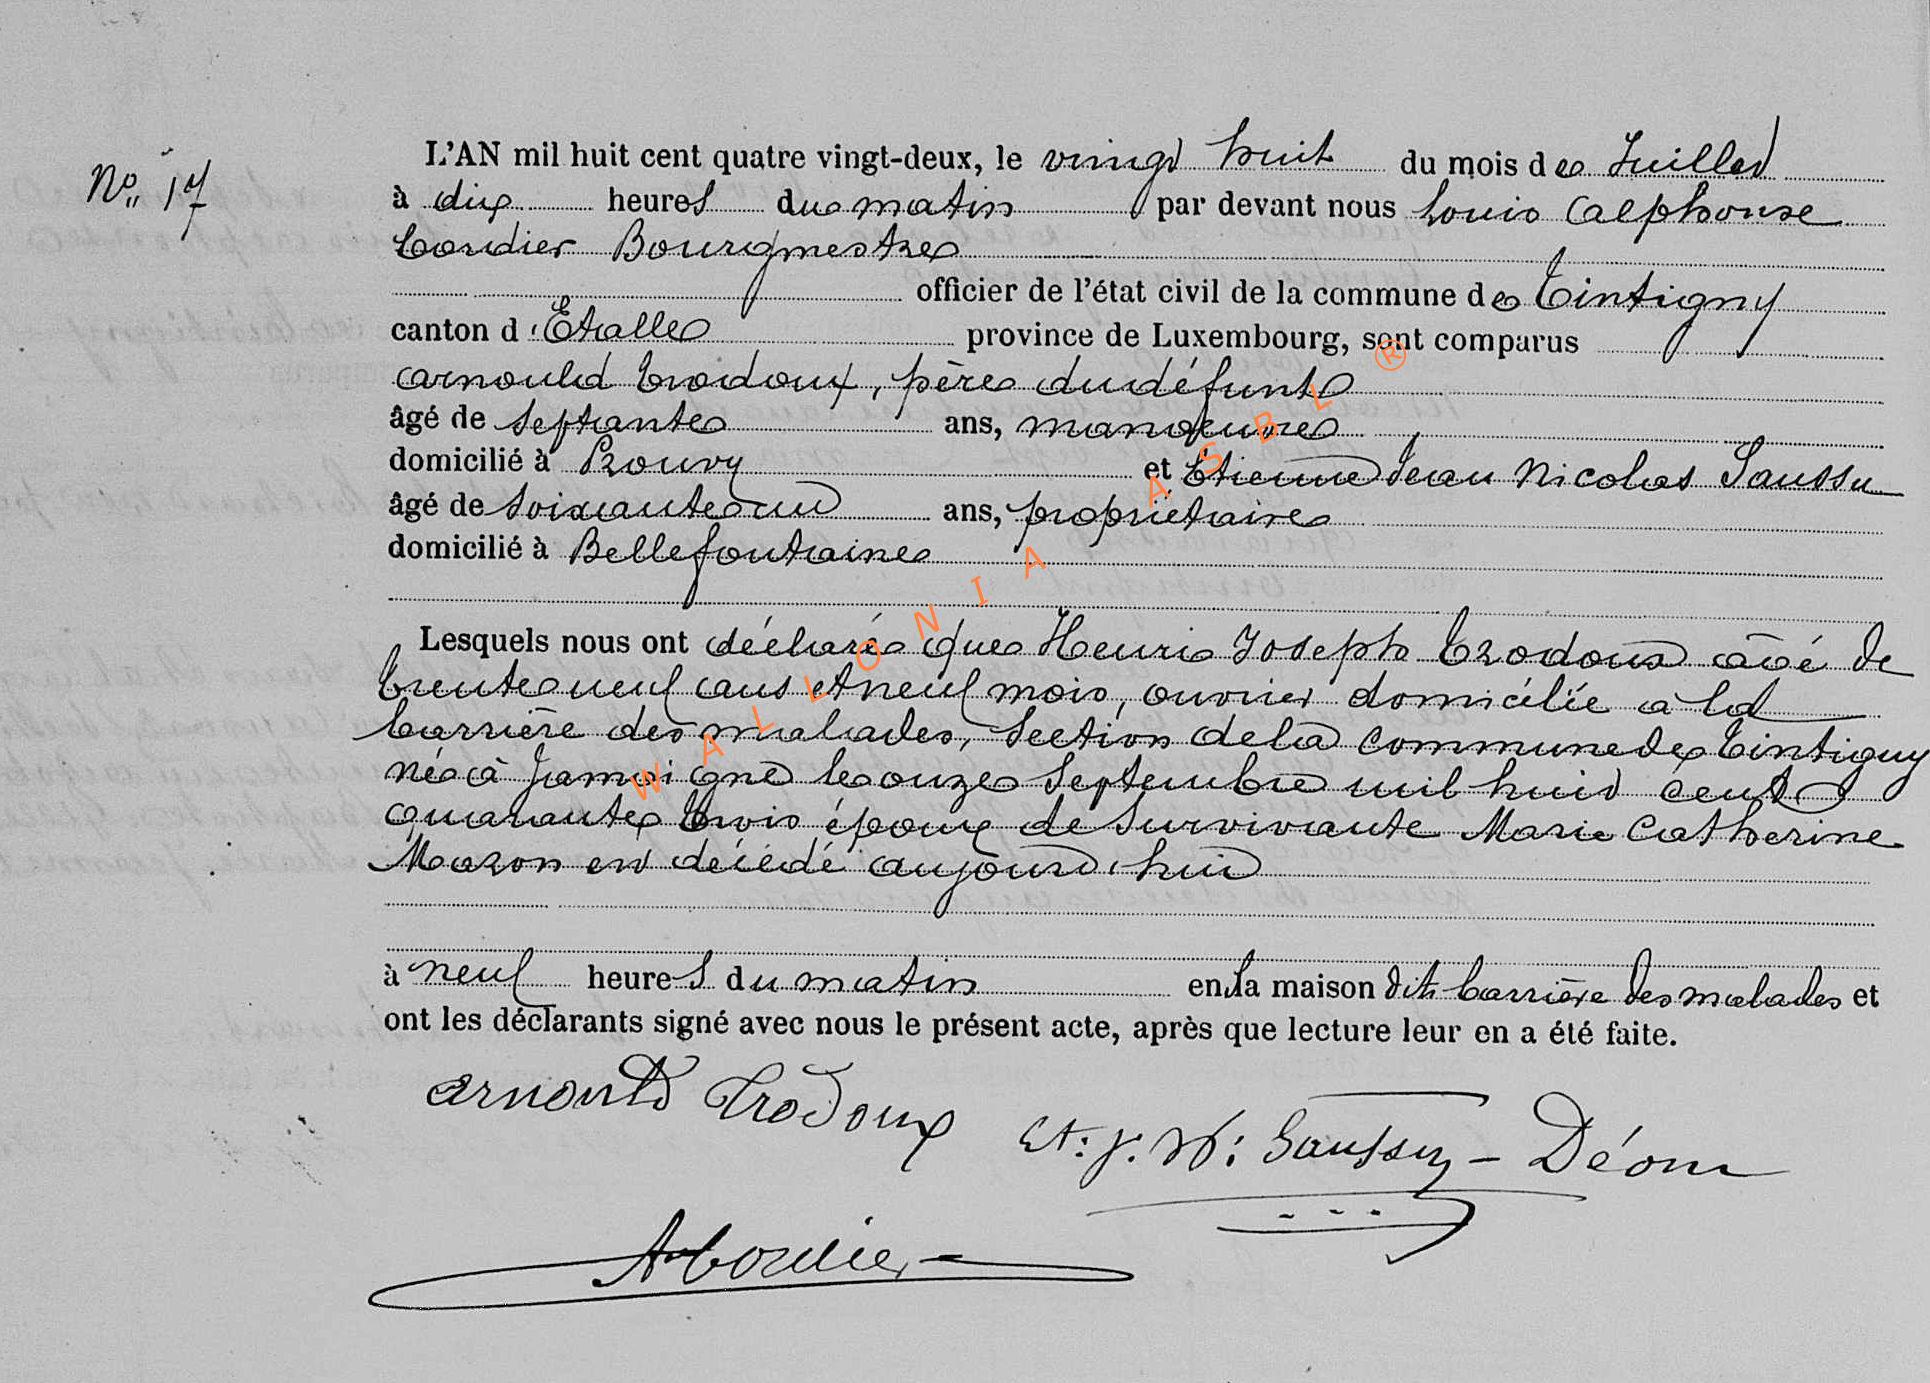 No 17
L'AN mil huit cent quatre vingt-deux, le vingt huit du mois de Juillet
à dix heures du matin par devant nous Louis Alphonse
Cordier Bourgmestre
officier de l'état civil de la commune de Tintigny
canton d'Etalle province de Luxembourg, sont comparus
Arnould Trodoux, père du défunt
âgé de septante ans, manoeuvre
domicilié à Prouvy et Etienne Jean Nicolas Saussu
âgé de soixante un ans, propriétaire
domicilié à Bellefontaine
Lesquels nous ont déclaré que Henri Joseph Trodoux âgé de
trente neuf ans et neuf mois, ouvrier domicilié a la
barrière des malades, section de la commune de Tintigny
né à Jamoigne le onze Septembre mil huit cent
quarante trois époux de survivante Marie Catherine
Mozon est décédé aujourd'hui
à neuf heures du matin en la maison dite barrière des malades et
ont les déclarants signé avec nous le présent acte, après que lecture leur en a été faite.
Arnould Trodoux
Et: J. N: Saussu - Déom
A Cordier
WALLONIA ASBL ®